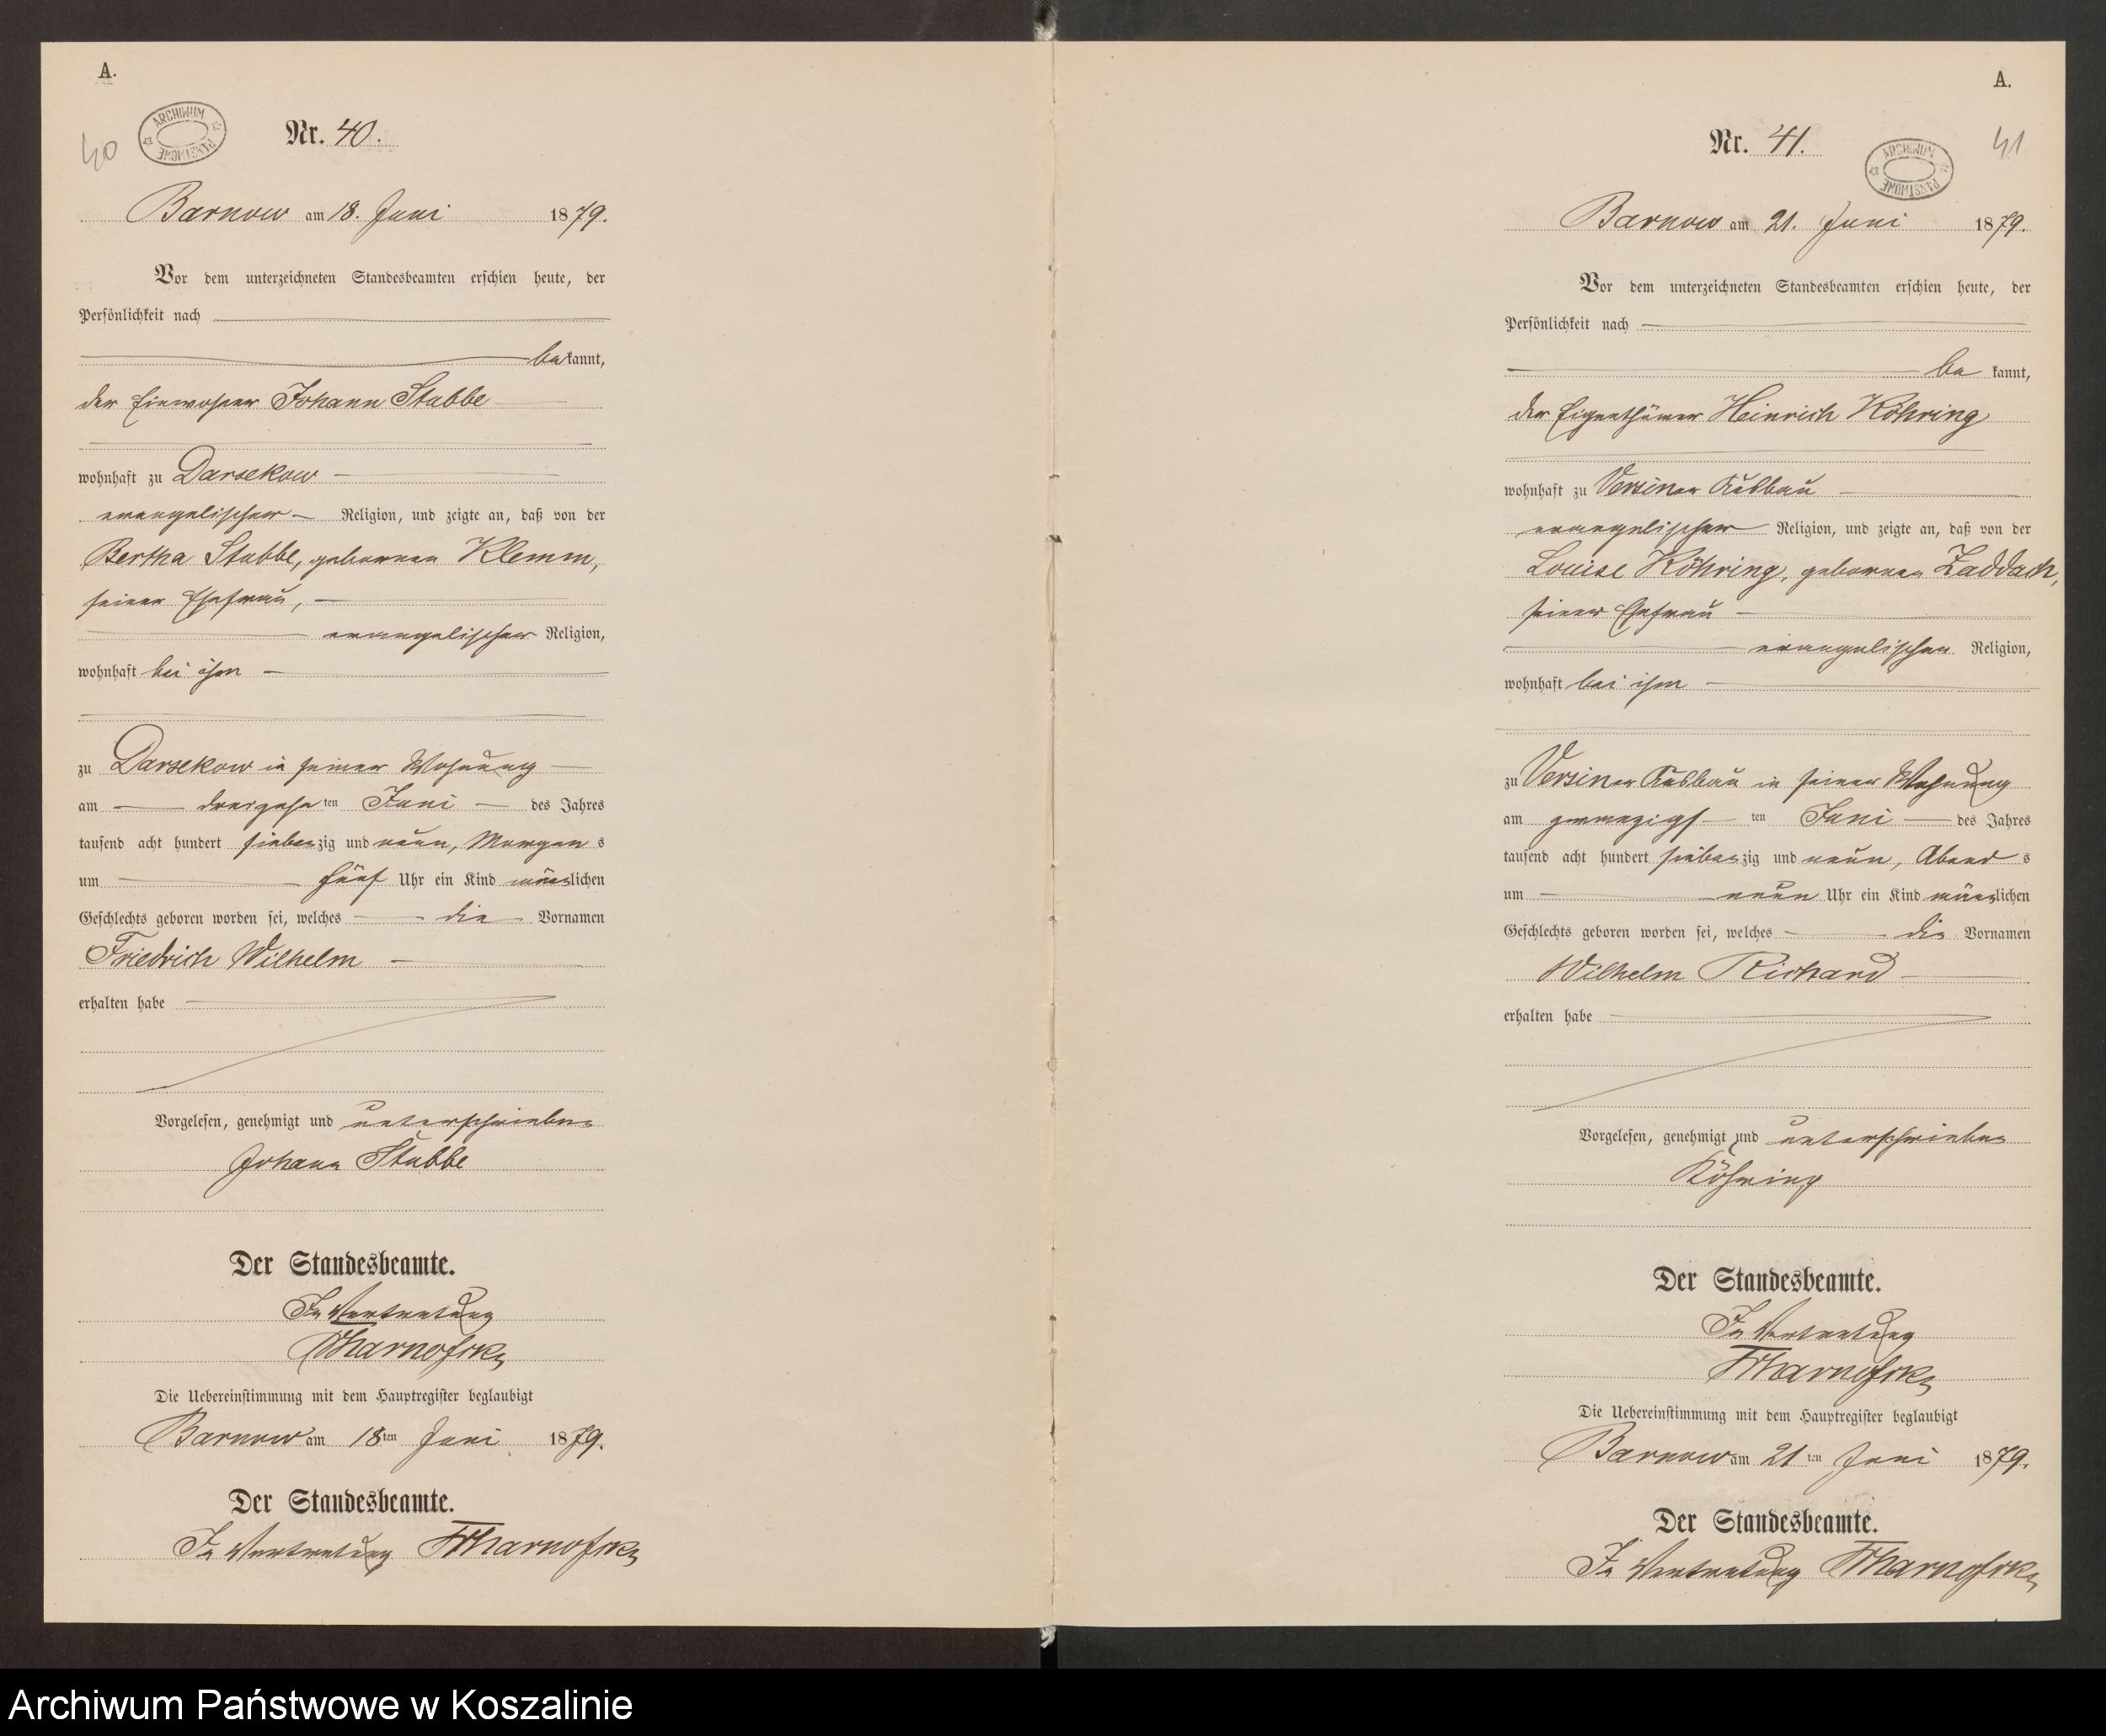 A.
40
ARCHIWUM PAŃSTWOWE
Nr. 40.
Barnow am 18. Juni 1879.
Vor dem unterzeichneten Standesbeamten erschien heute, der
Persönlichkeit nach
bekannt,
der Einwohner Johann Stubbe
wohnhaft zu Darsekow
evangelischer Religion, und zeigte an, daß von der
Bertha Stubbe, geborenen Klemm,
seiner Ehefrau,
evangelischer Religion,
wohnhaft bei ihm
zu Darsekow in seiner Wohnung
am dreizehnten Juni des Jahres
tausend acht hundert siebenzig und neun, Morgens
um fünf Uhr ein Kind männlichen
Geschlechts geboren worden sei, welches die Vornamen
Friedrich Wilhelm
erhalten habe
Vorgelesen, genehmigt und unterschrieben
Johann Stubbe
Der Standesbeamte.
In Vertretung
Die Uebereinstimmung mit dem Hauptregister beglaubigt
Barnow am 18ten Juni 1879.
Der Standesbeamte.
In Vertretung
A.
41
ARCHIWUM PAŃSTWOWE
Nr. 41.
Barnow am 21. Juni 1879.
Vor dem unterzeichneten Standesbeamten erschien heute, der
Persönlichkeit nach
bekannt,
der Eigenthümer Heinrich Röhring
wohnhaft zu Versiner Ausbau
evangelischer Religion, und zeigte an, daß von der
Louise Röhring, geborenen Zaddach,
seiner Ehefrau
evangelischen Religion,
wohnhaft bei ihm
zu Versiner Ausbau in seiner Wohnung
am zwanzigsten Juni des Jahres
tausend acht hundert siebenzig und neun, Abends
um neun Uhr ein Kind männlichen
Geschlechts geboren worden sei, welches die Vornamen
Wilhelm Richard
erhalten habe
Vorgelesen, genehmigt und unterschrieben
Röhring
Der Standesbeamte.
In Vertretung
Die Uebereinstimmung mit dem Hauptregister beglaubigt
Barnow am 21ten Juni 1879.
Der Standesbeamte.
In Vertretung
Archiwum Państwowe w Koszalinie